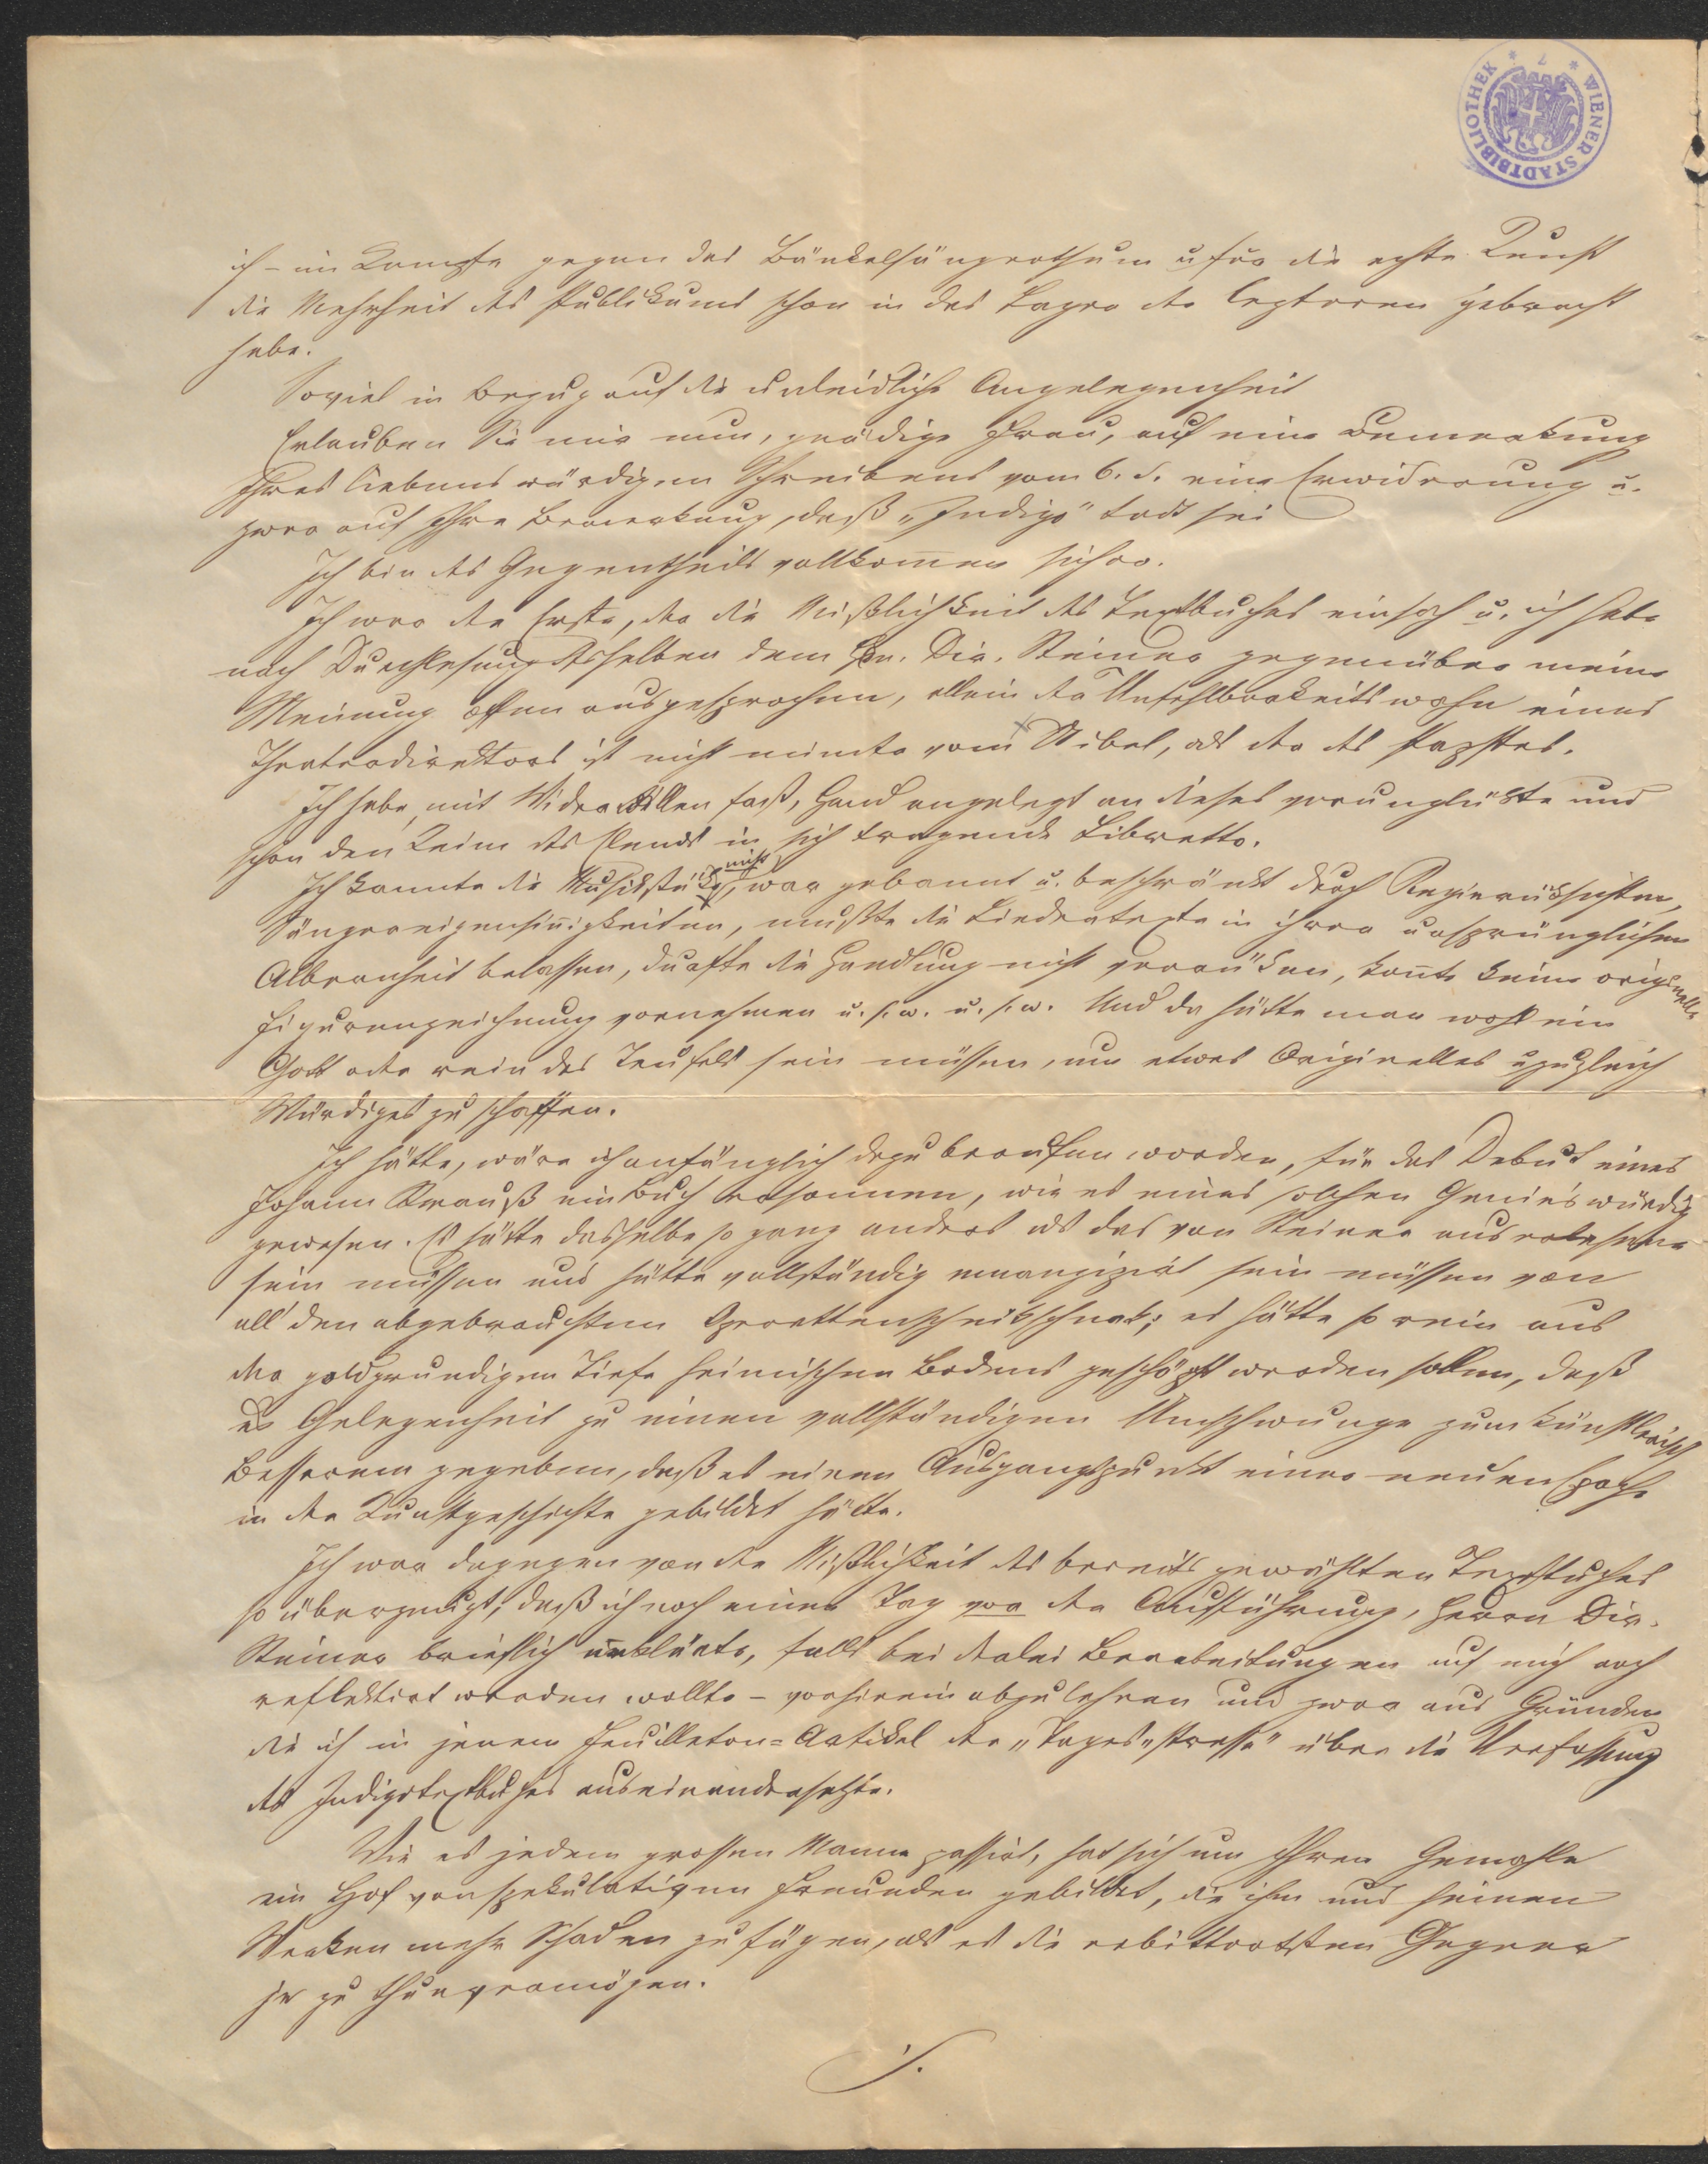 WIENER STADTBIBLIOTHEK
ich – im Kampfe gegen das Bänkelsängerthum u. für die echte Kunst
die Mehrheit des Publikums schon in das Lager der letzteren gebracht
habe.
Soviel in Bezug auf die unleidliche Angelegenheit
Erlauben Sie mir nun, gnädige Frau, auf eine Bemerkung
Ihres liebenswürdigen Schreibens vom 6. d. eine Erwiderung u.
zwar auf Ihre Bemerkung, daß „Indigo" todt sei
Ich bin des Gegentheils vollkommen sicher.
Ich war der Erste, der die Mißlichkeit des Textbuches einsah u. ich habe
nach Durchlesung desselben dem Hrn. Dir. Steiner gegenüber meine
Meinung offen ausgesprochen, allein der Unfehlbarkeitswahn eines
Theaterdirektors ist nicht minder vom Uibel, als der des Papstes.
Ich habe, mit Widerwillen fast, Hand angelegt an dieses verunglückte und
schon den Keim des Elends in sich tragende Libretto.
Ich kannte die Musikstücke nicht, war gebannt u. beschränkt durch Regierücksichten,
Sängereigensinnigkeiten, mußte die Liedertexte in ihrer ursprünglichen
Albernheit belassen, durfte die Handlung nicht verrücken, konnte keine originelle
Figurenzeichnung vornehmen u. s. w. u. s. w. Und da hätte man wohl ein
Gott oder rein des Teufels sein müssen, um etwas Originelles u. zugleich
Würdiges zu schaffen.
Ich hätte, wäre ich anfänglich dazu berufen worden, für das Debut eines
Johann Strauß ein Buch ersonnen, wie es eines solchen Genie's würdig
gewesen. Es hätte dasselbe so ganz anders als das von Steiner auserlesene
sein müssen und hätte vollständig emanzipirt sein müssen von
all' den abgebrauchten Operettenschnikschnak; es hätte so rein aus
der goldgrundigen Tiefe heimischen Bodens geschöpft werden sollen, daß
es Gelegenheit zu einen vollständigen Umschwunge zum künstlerisch
Besseren gegeben, daß es einen Ausgangspunkt einer neuen Epoche
in der Kunstgeschichte gebildet hätte.
Ich war dagegen von der Mißlichkeit des bereits gewählten Textbuches
so überzeugt, daß ich noch einen Tag vor der Aufführung, Herrn Dir.
Steiner brieflich erklärte, falls bei derlei Bearbeitungen auf mich noch
reflektirt werden wollte – vorhinein abzulehnen und zwar aus Gründen
die ich in jenem Feuilleton-Artikel der „Tages-Presse" über die Verfassung
des Indigotextbuches auseinandersetzte.
Wie es jedem grossen Manne passirt, hat sich um Ihren Gemahle
ein Hof von spekulativen Freunden gebildet, die ihm und seinen
Werken mehr Schaden zufügen, als es die erbittertsten Gegner
je zu thun vermögen.